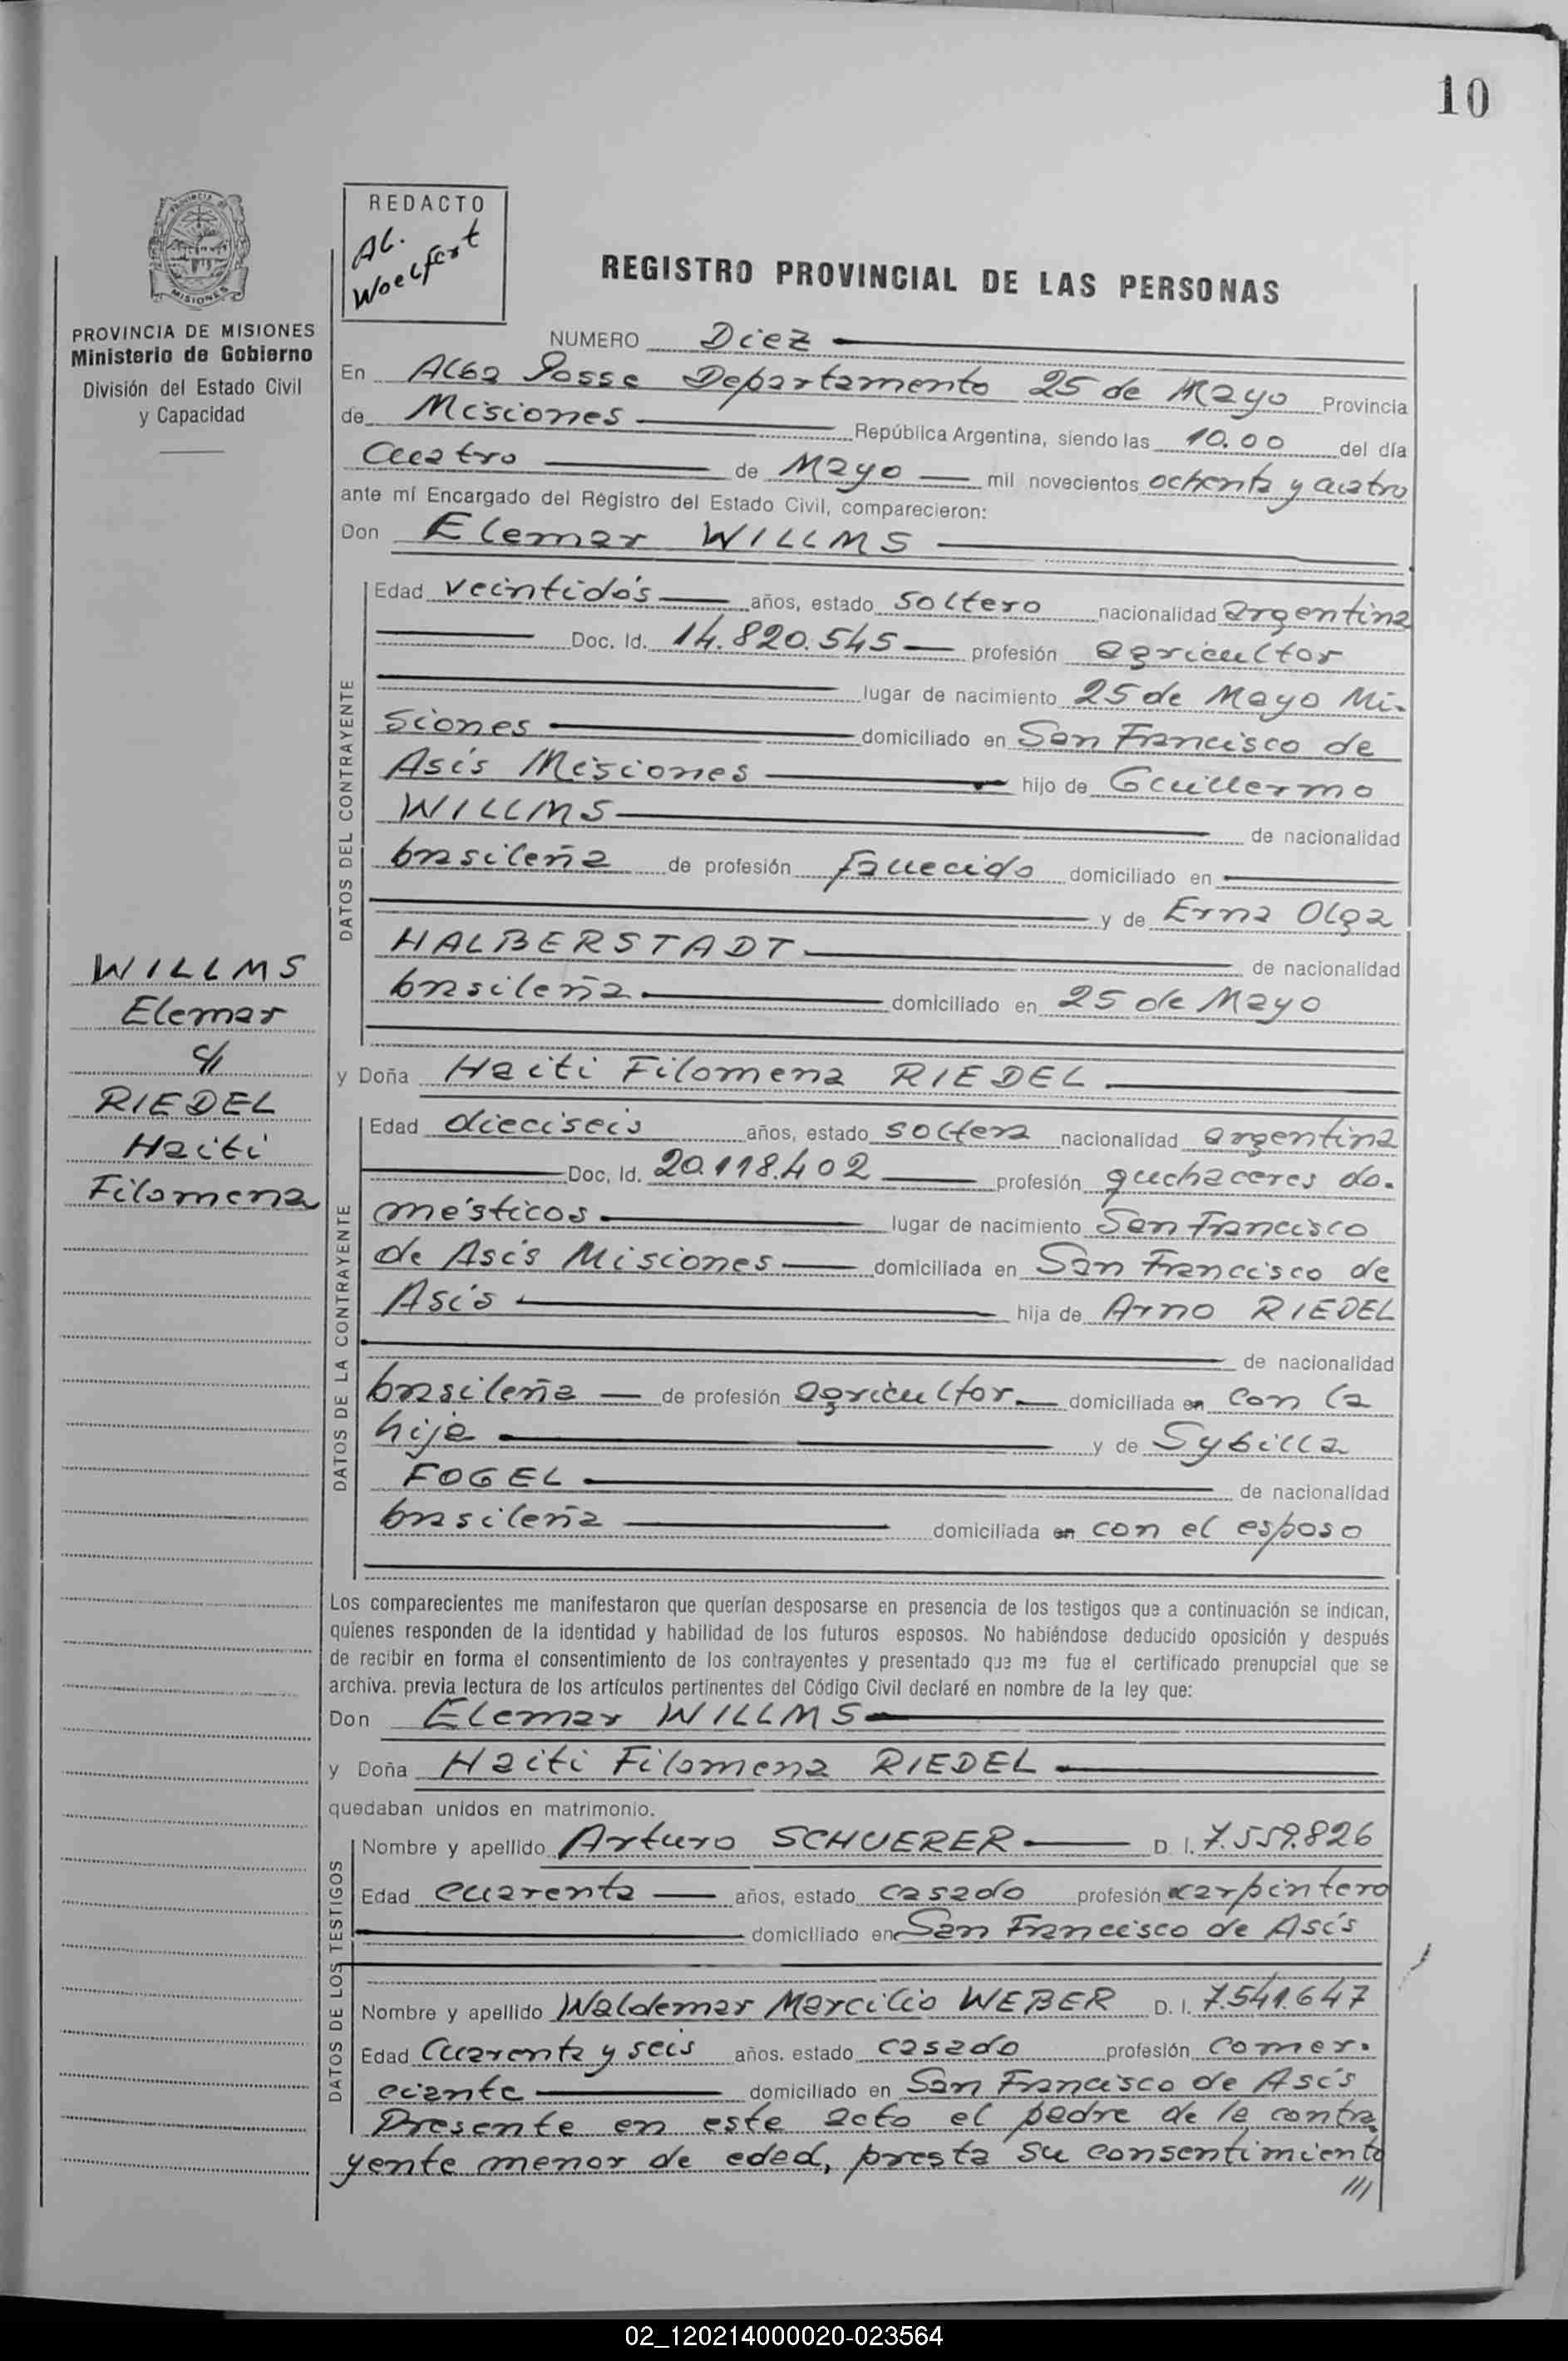 10
REDACTO
Al.
Woelfert
PROVINCIA DE MISIONES
MISIONES
PROVINCIA DE MISIONES
Ministerio de Gobierno
División del Estado Civil
y Capacidad
REGISTRO PROVINCIAL DE LAS PERSONAS
NUMERO Diez
En Alba Posse Departamento 25 de Mayo Provincia
de Misiones República Argentina, siendo las 10.00 del día
Cuatro de Mayo mil novecientos ochenta y cuatro
ante mí Encargado del Registro del Estado Civil, comparecieron:
Don Elemar WILLMS
DATOS DEL CONTRAYENTE
Edad veintidós años, estado soltero nacionalidad argentina
Doc. Id. 14.820.545 profesión agricultor
lugar de nacimiento 25 de Mayo Mi-
siones domiciliado en San Francisco de
Asís Misiones hijo de Guillermo
WILLMS de nacionalidad
brasileña de profesión fallecido domiciliado en
y de Erna Olga
HALBERSTADT de nacionalidad
brasileña domiciliado en 25 de Mayo
WILLMS
Elemar
c/
RIEDEL
Haiti
Filomena
y Doña Haiti Filomena RIEDEL
DATOS DE LA CONTRAYENTE
Edad dieciseis años, estado soltera nacionalidad argentina
Doc. Id. 20.118.402 profesión quehaceres do-
mésticos lugar de nacimiento San Francisco
de Asís Misiones domiciliada en San Francisco de
Asís hija de Arno RIEDEL
de nacionalidad
brasileña de profesión agricultor domiciliada en con la
hija y de Sybilla
FOGEL de nacionalidad
brasileña domiciliada en con el esposo
Los comparecientes me manifestaron que querían desposarse en presencia de los testigos que a continuación se indican,
quienes responden de la identidad y habilidad de los futuros esposos. No habiéndose deducido oposición y después
de recibir en forma el consentimiento de los contrayentes y presentado que me fue el certificado prenupcial que se
archiva. previa lectura de los artículos pertinentes del Código Civil declaré en nombre de la ley que:
Don Elemar WILLMS
y Doña Haiti Filomena RIEDEL
quedaban unidos en matrimonio.
DATOS DE LOS TESTIGOS
Nombre y apellido Arturo SCHUERER D. I. 7.559.826
Edad cuarenta años, estado casado profesión carpintero
domiciliado en San Francisco de Asís
Nombre y apellido Waldemar Marcilio WEBER D. I. 7.541.647
Edad Cuarenta y seis años. estado casado profesión comer-
ciante domiciliado en San Francisco de Asís
Presente en este acto el padre de la contra
yente menor de edad, presta su consentimiento
///
02_120214000020-023564